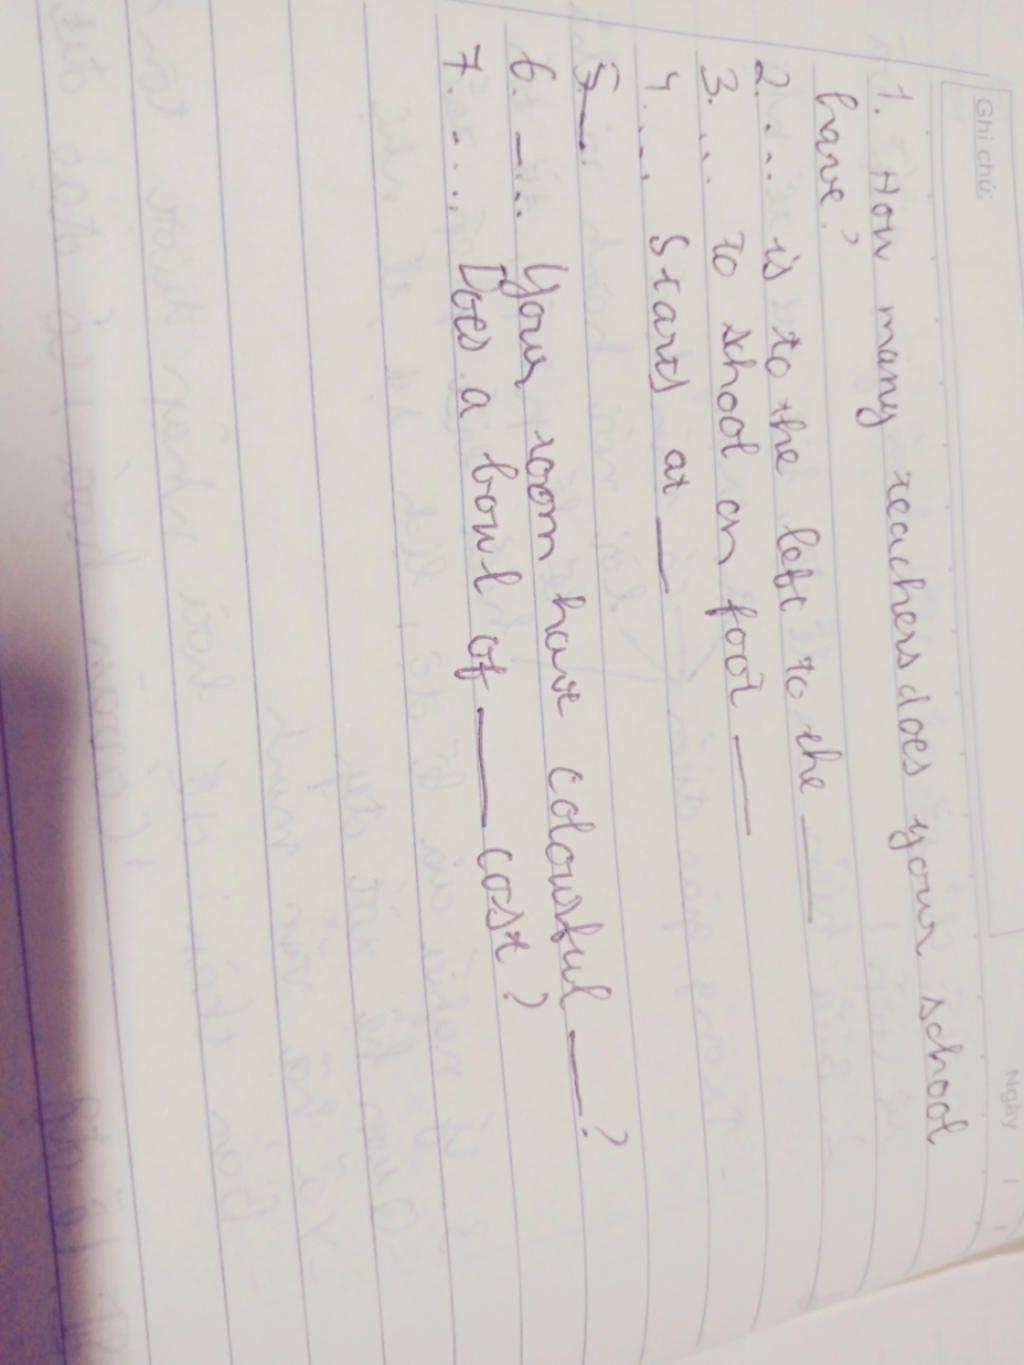 Ghi chú:
Ngày
1. How many teachers does your school
have?
2. ... is to the left to the ___
3. ... to school on foot ___
4. ... starts at ___
5 ___.
6. ___... Your room have colourful ___?
7. .... Does a bowl of ___ cost?